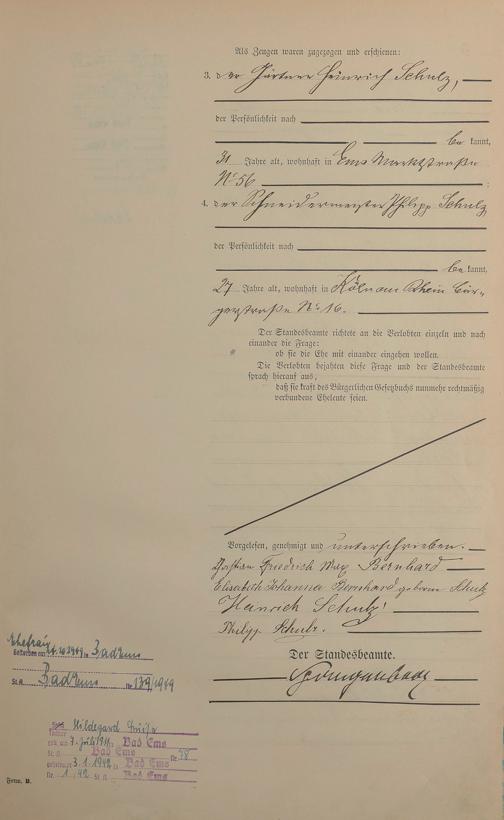 Als Zeugen waren zugezogen und erschienen:
3. der Gärtner Heinrich Schulz,
der Persönlichkeit nach
be kannt,
31 Jahre alt, wohnhaft in Ems Marktstraße
No 56 ;
4. der Schneidermeister Philipp Schulz
der Persönlichkeit nach
be kannt,
27 Jahre alt, wohnhaft in Köln am Rhein
No 16.
Der Standesbeamte richtete an die Verlobten einzeln und nach
einander die Frage:
ob sie die Ehe mit einander eingehen wollen.
Die Verlobten bejahten diese Frage und der Standesbeamte
sprach hierauf aus,
daß sie kraft des Bürgerlichen Gesetzbuchs nunmehr rechtmäßig
verbundene Eheleute seien.
Vorgelesen, genehmigt und unterschrieben.
Friedrich Max Bernhard
Elisabeth Johanna Bernhard geborene Schulz
Heinrich Schulz
Philipp Schulz.
Der Standesbeamte.
Ehefrau
Gestorben am 1949 in Bad Ems
St. A. Bad Ems Nr 139/1949
Hildegard
geb. am 7. Juli 1911 in Bad Ems
St. A. Bad Ems Nr. 78
3.1.1942 in Bad Ems
Nr. 1/42 St. A. Bad Ems
Form. B.